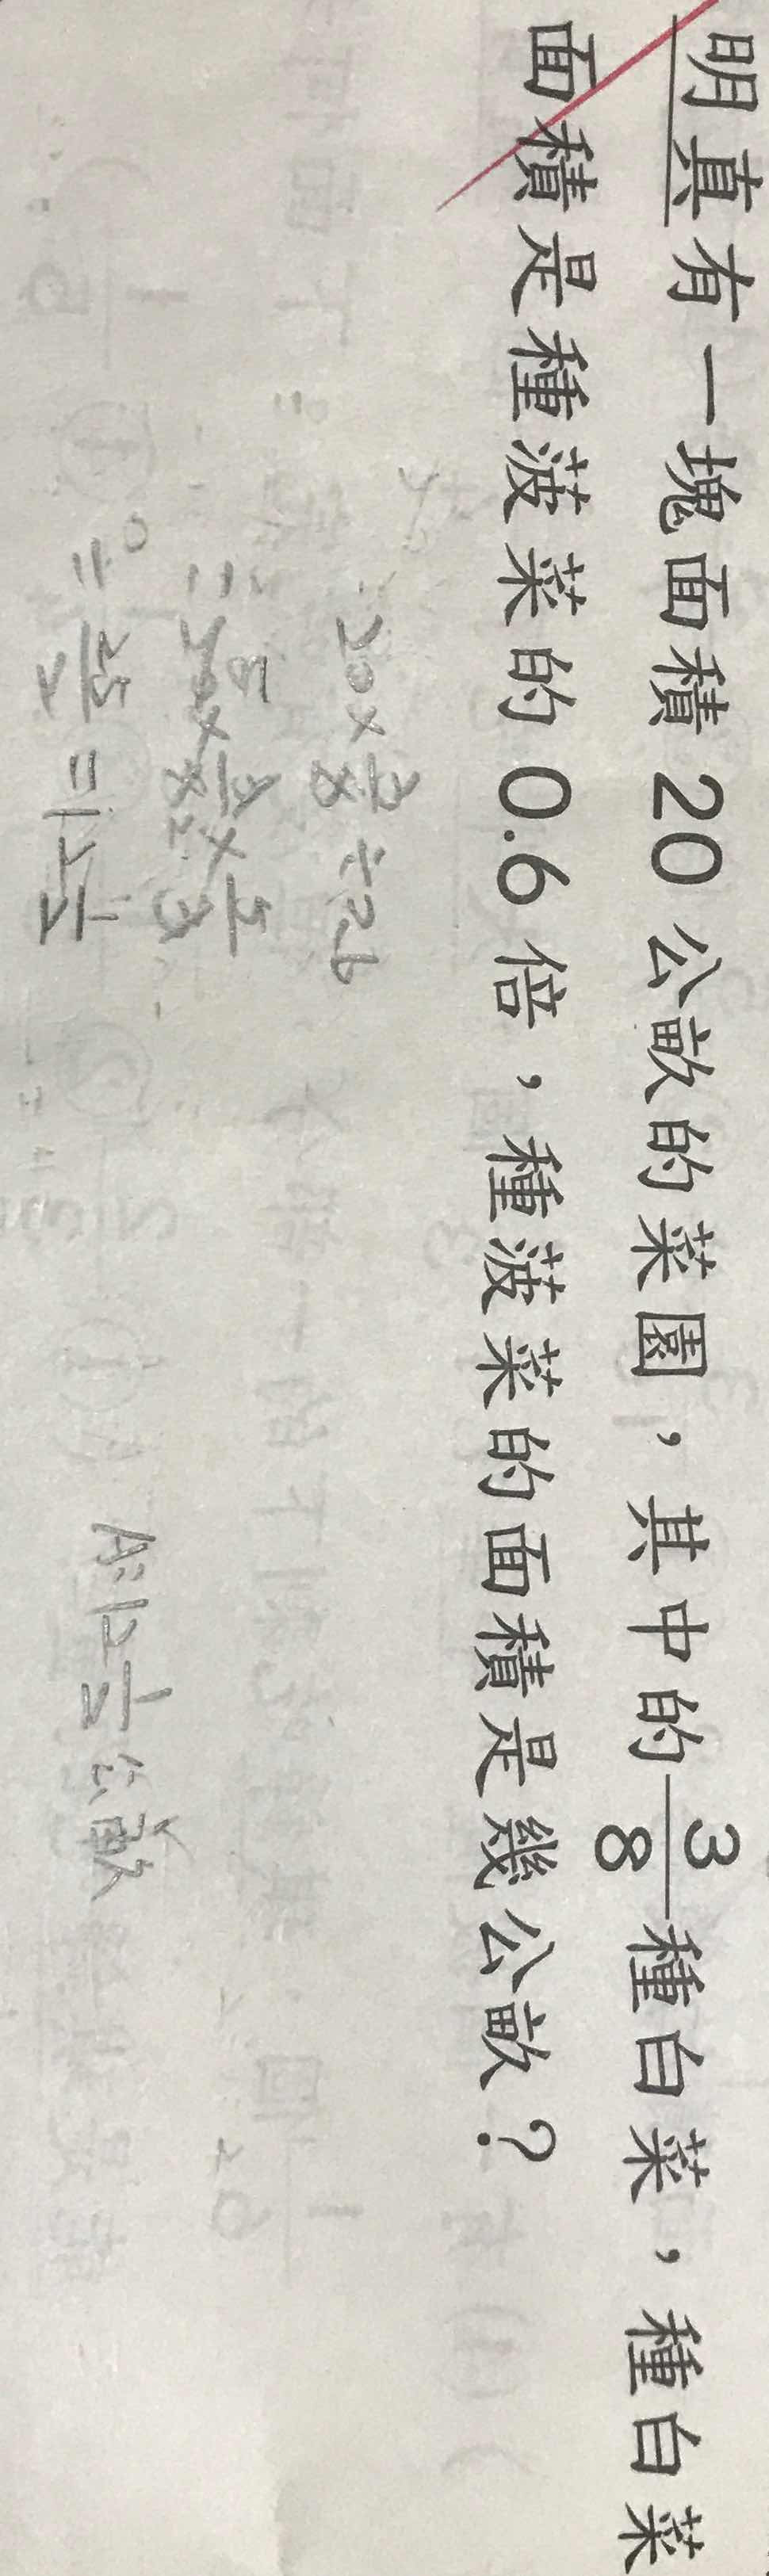 明真有一塊面積20公畝的菜園，其中的3/8種白菜，種白菜
面積是種菠菜的0.6倍，種菠菜的面積是幾公畝？
20×3/8÷0.6
=20×3/8×5/3
=25/2=12 1/2
A:12 1/2公畝